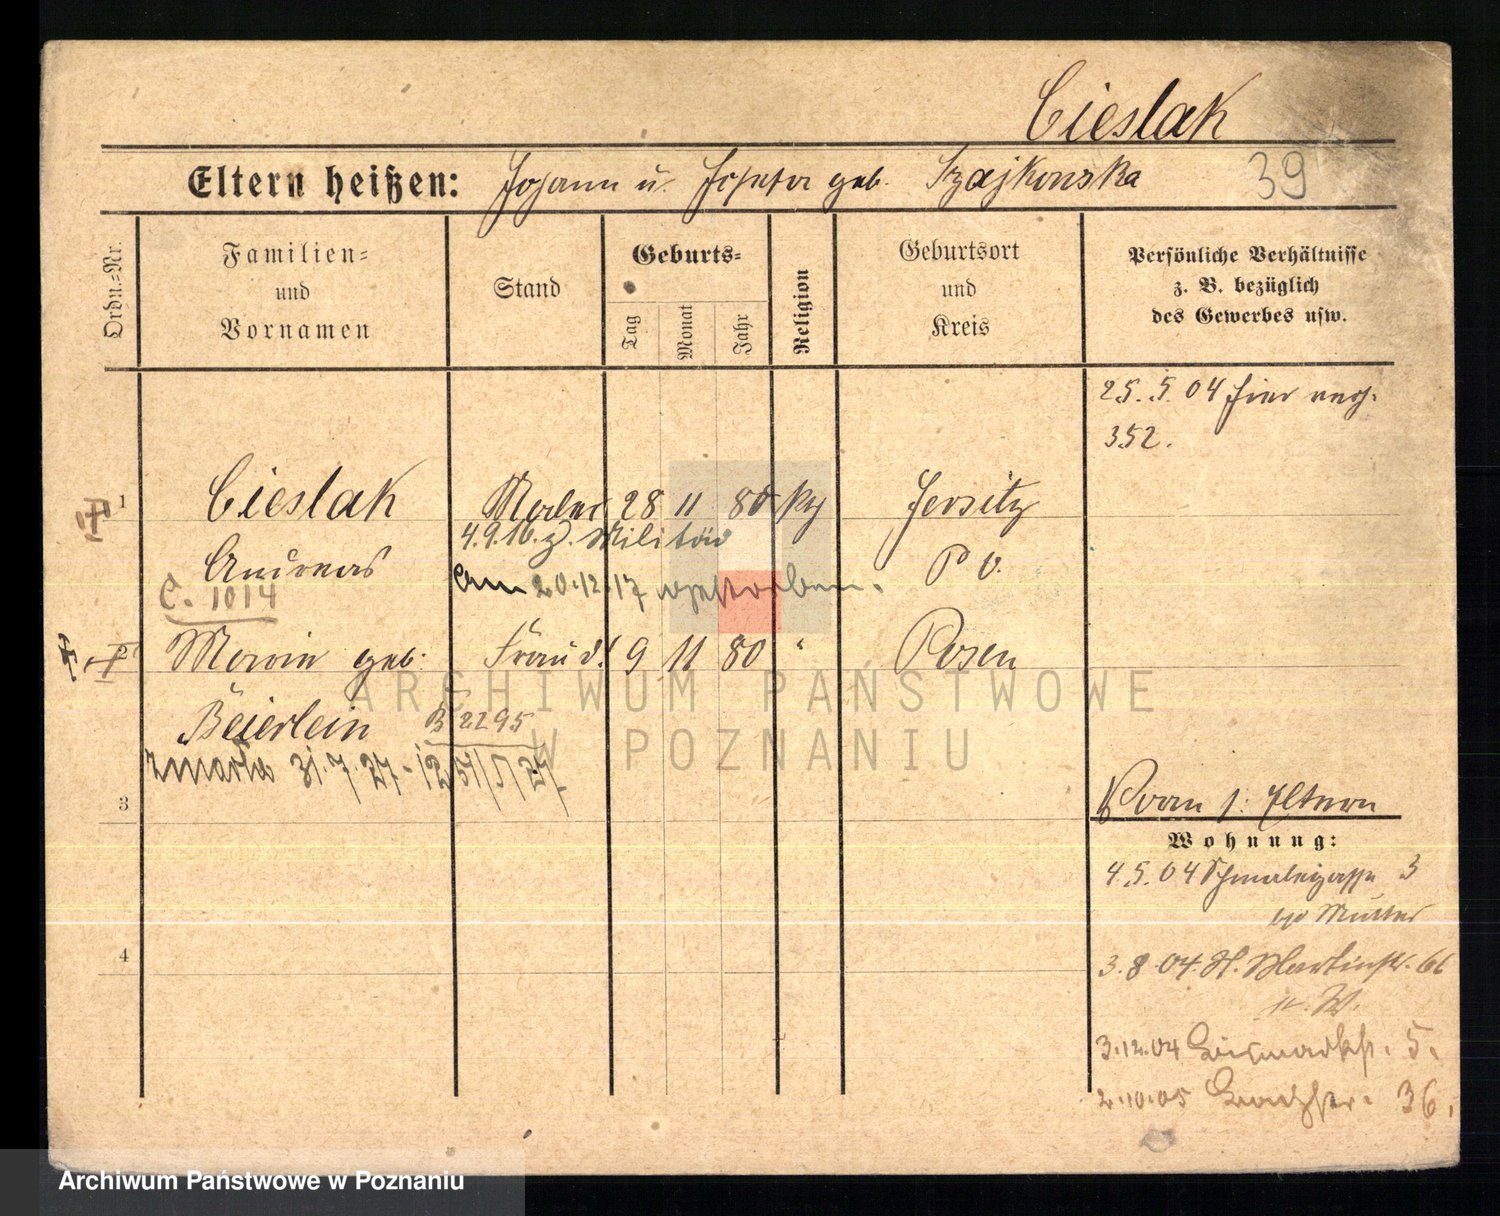 Cieslak
Eltern heißen: Johann u. Josefa geb. Szajkowska 39
Ordn.-Nr.
Familien-
und
Vornamen
Stand
Geburts-
Tag
Monat
Jahr
Religion
Geburtsort
und
Kreis
Persönliche Verhältnisse
z. B. bezüglich
des Gewerbes usw.
25. 5. 04 hier
352.
1 Cieslak Maler 28 11 80 Jersitz
4.9.16. z. Militär
Andreas P O.
am 20.12.17 gestorben.
C. 1014
2 Marie geb. Frau d. 9 11 80 " Posen
Beierlein B 2295
zmarła 31.7.27 -
3
Eltern
Wohnung:
4.5.04 Schmalegasse 3
Mutter
4
3.8.04. St. Martinstr. 66
3.12.04 Bismarckstr. 5.
2.10.05 36.
ARCHIWUM PAŃSTWOWE
W POZNANIU
Archiwum Państwowe w Poznaniu